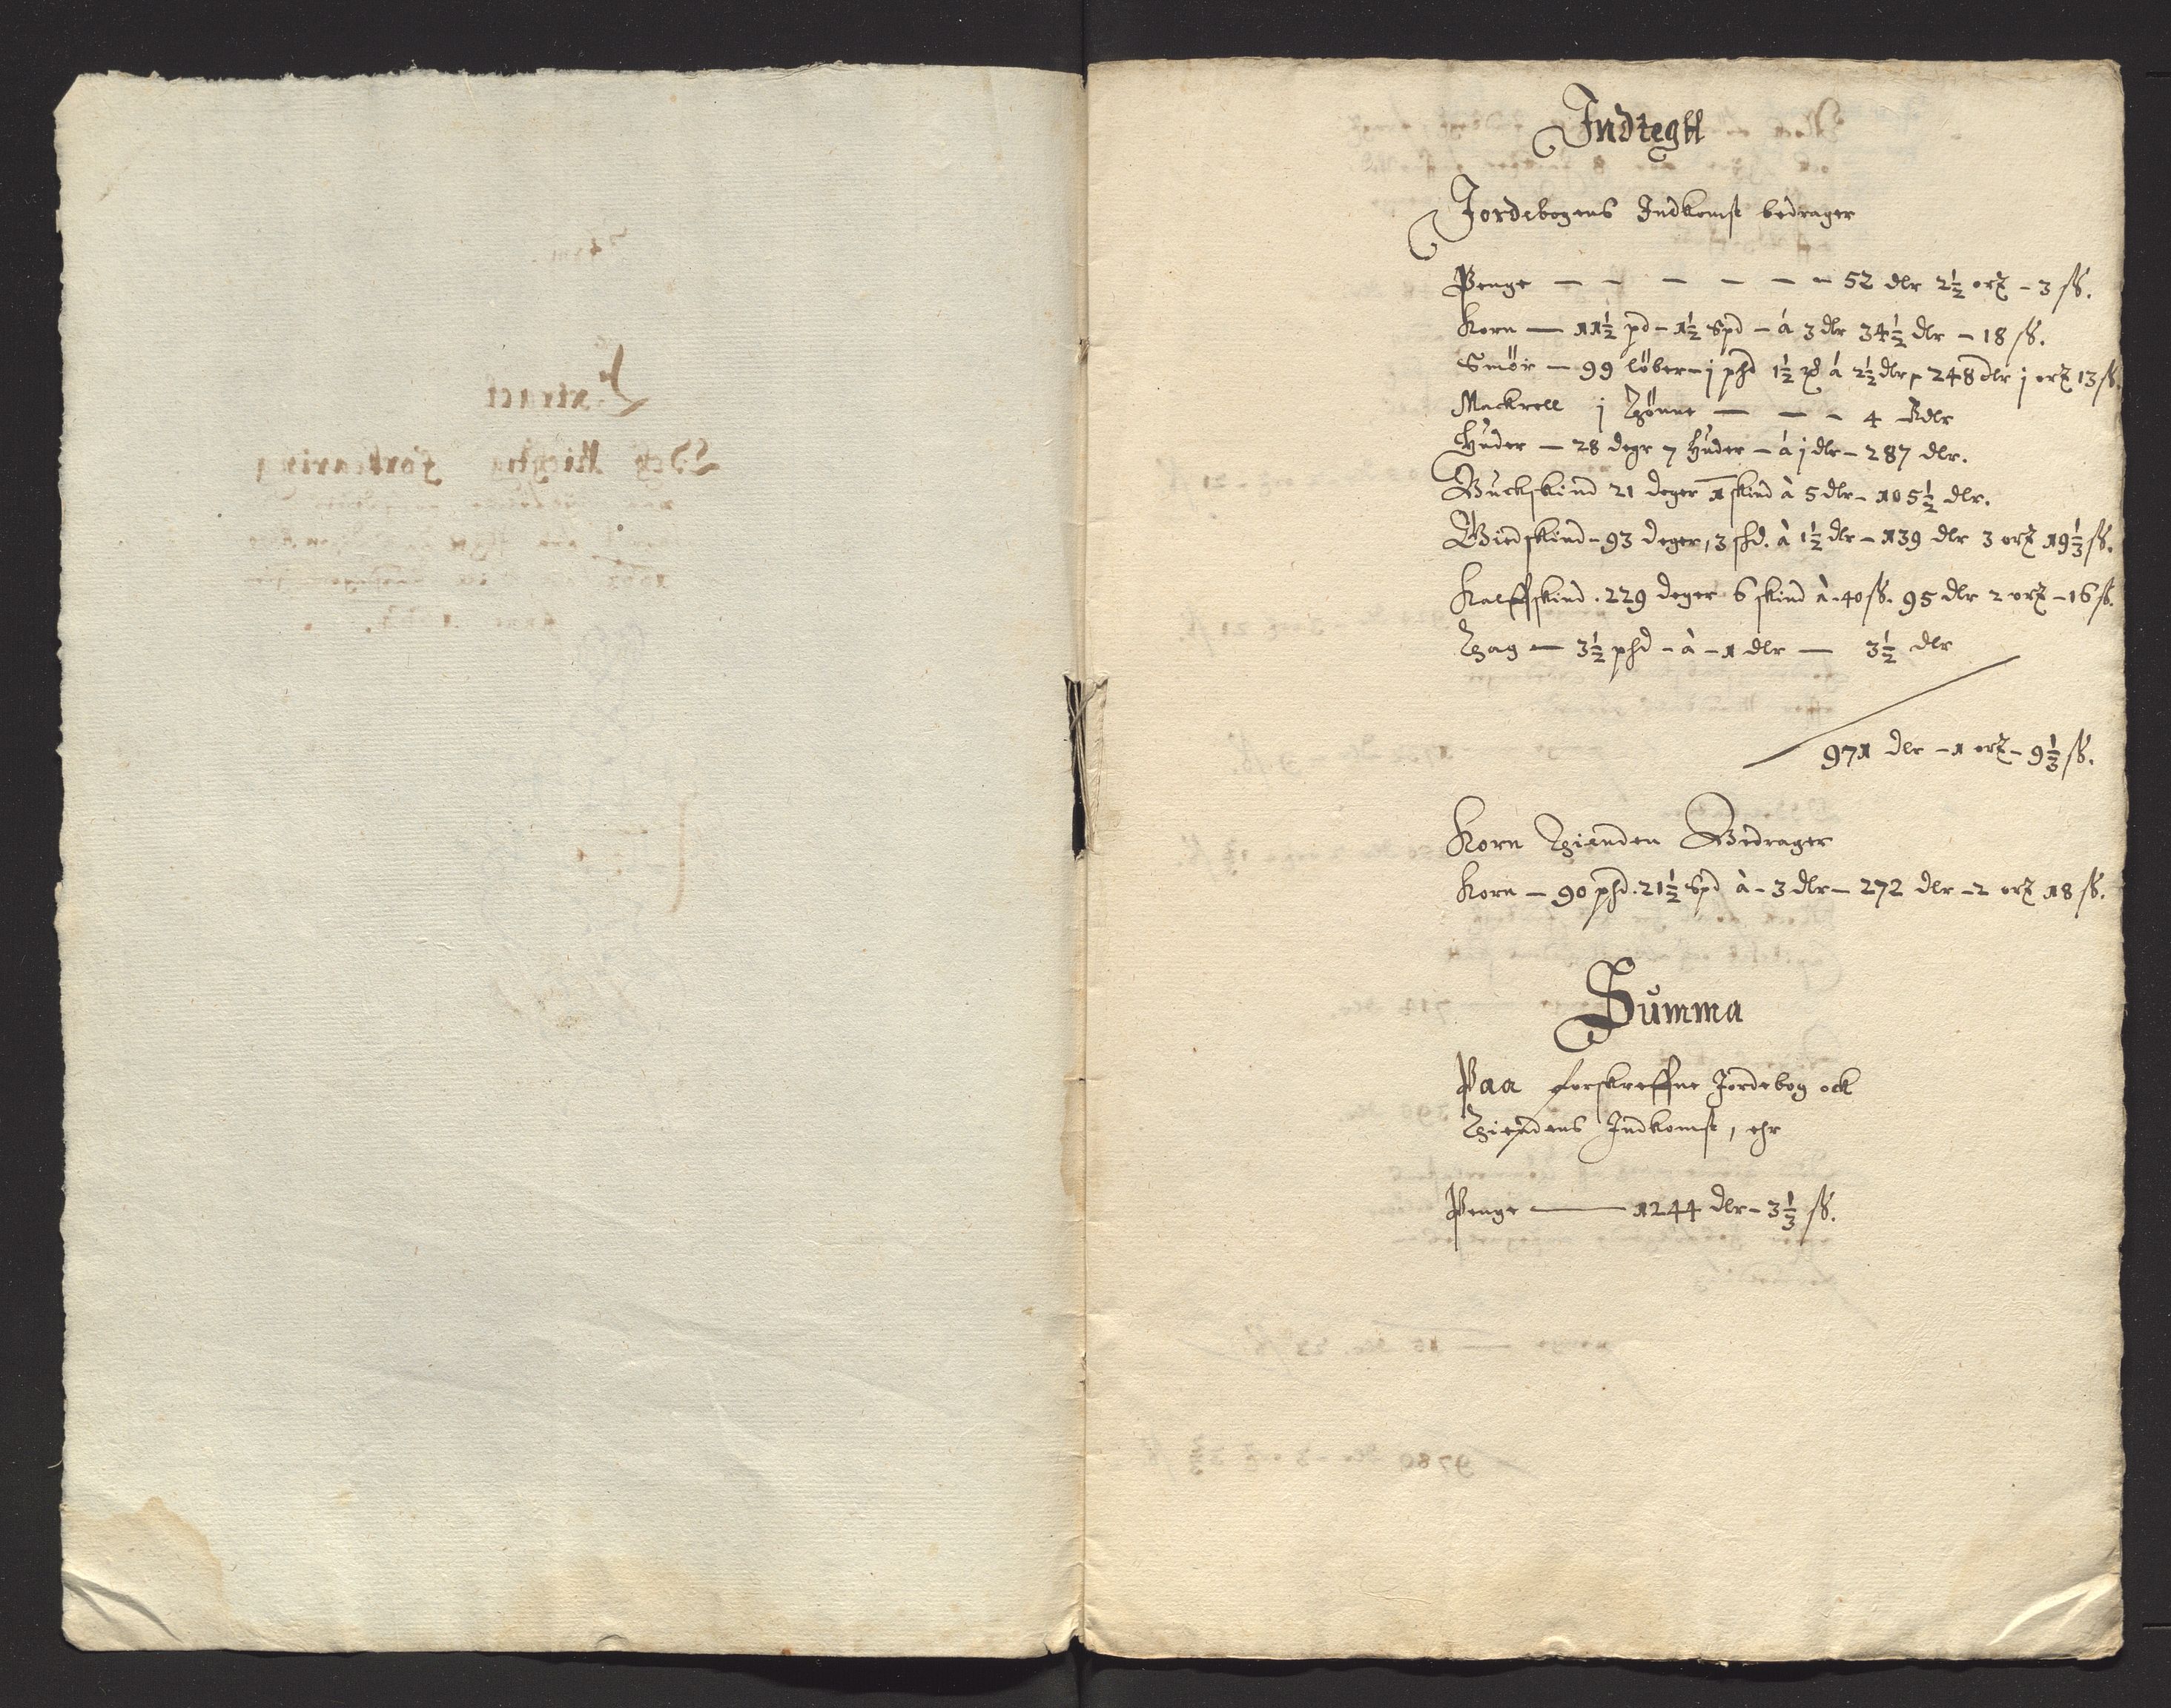 Indtegtt
Jordebogens Indkomst bedrager
Penge — — — — — — 52 dlr 2½ ort – 3 ß.
Korn — 11½ pd – 1½ Spd – á 3 dlr 34½ dlr – 18 ß.
Smör — 99 löber – j phd 1½ á 2½ dlr, 248 dlr j ort 13 ß
Mackrell j Tönne — — – 4 Rdlr
Huder — 28 degr 7 huder – á j dlr – 287 dlr.
Buckskind 21 deger 1 skind à 5 dlr – 105½ dlr.
Giedskind – 93 deger, 3 shd. à 1½ dlr – 139 dlr 3 ort 19⅓ ß.
Kalffskind . 229 deger 6 skind à – 40 ß. 95 dlr 2 ort – 16 ß.
Tag — 3½ phd – à – 1 dlr — 3½ dlr
971 dlr – 1 ort – 9⅓ ß.
Korn Tienden Bedrager
Korn — 90 phd. 21½ Spd à – 3 dlr – 272 dlr – 2 ort 18 ß.
Summa
Paa forskreffne Jordebog ock
Tiendens Indkomst, ehr
Penge ——— 1244 dlr – 3⅓ ß.